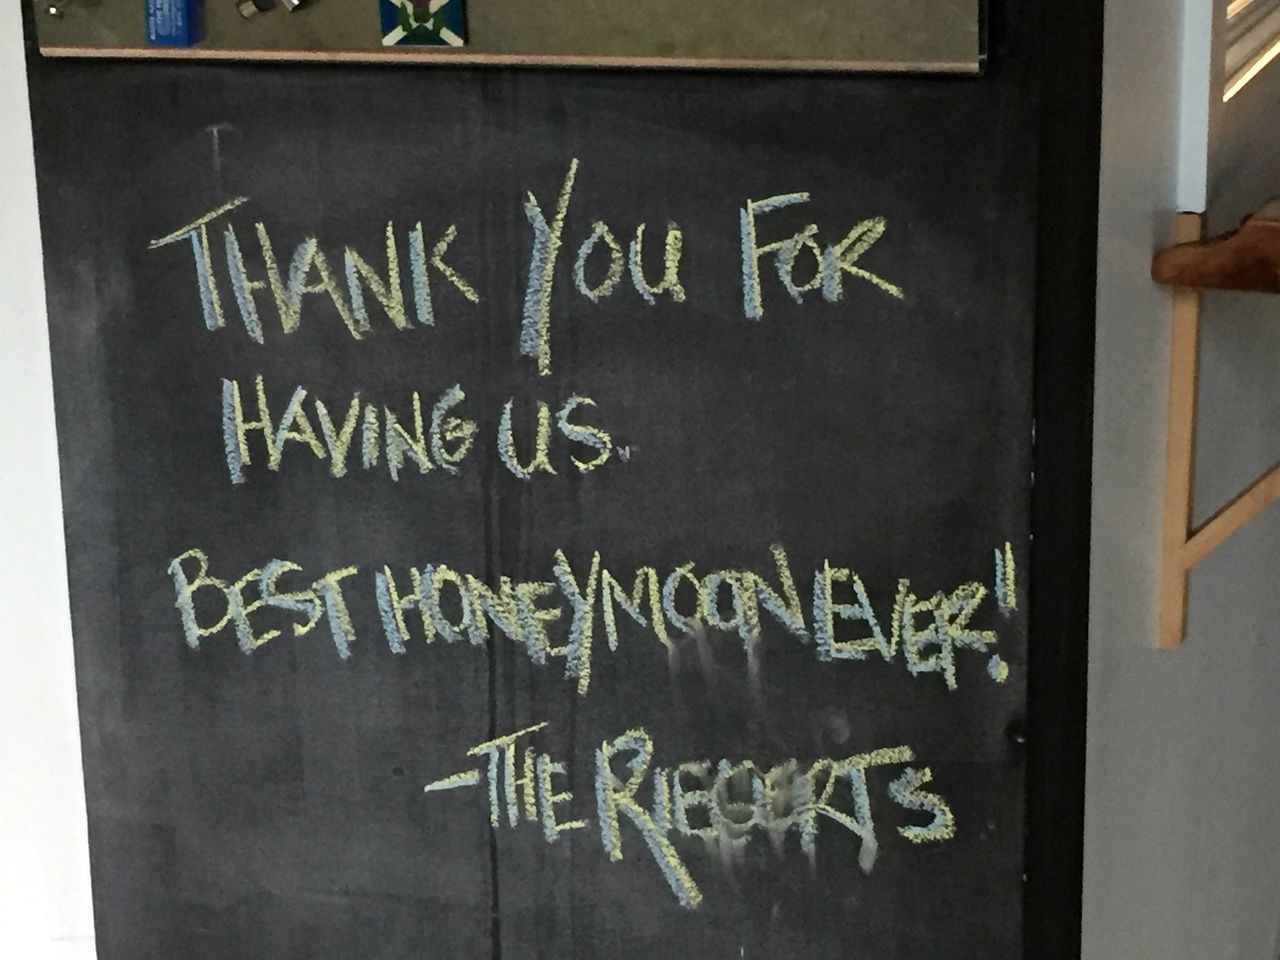 THANK YOU FOR
HAVING US.
BEST HONEYMOON EVER!
-THE